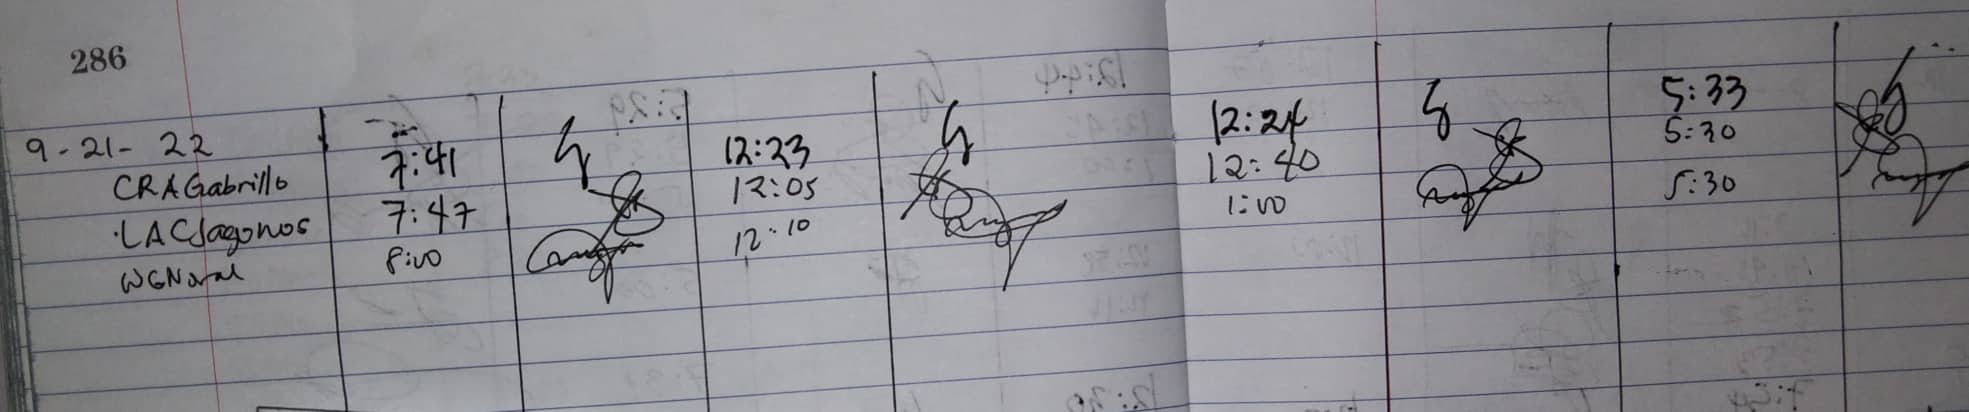 286
9-21-22
CRAGabrillo 7:41 12:23 12:24 5:33
LACJagonos 7:47 12:05 12:40 5:30
WGNaval 8:00 12:10 1:00 5:30